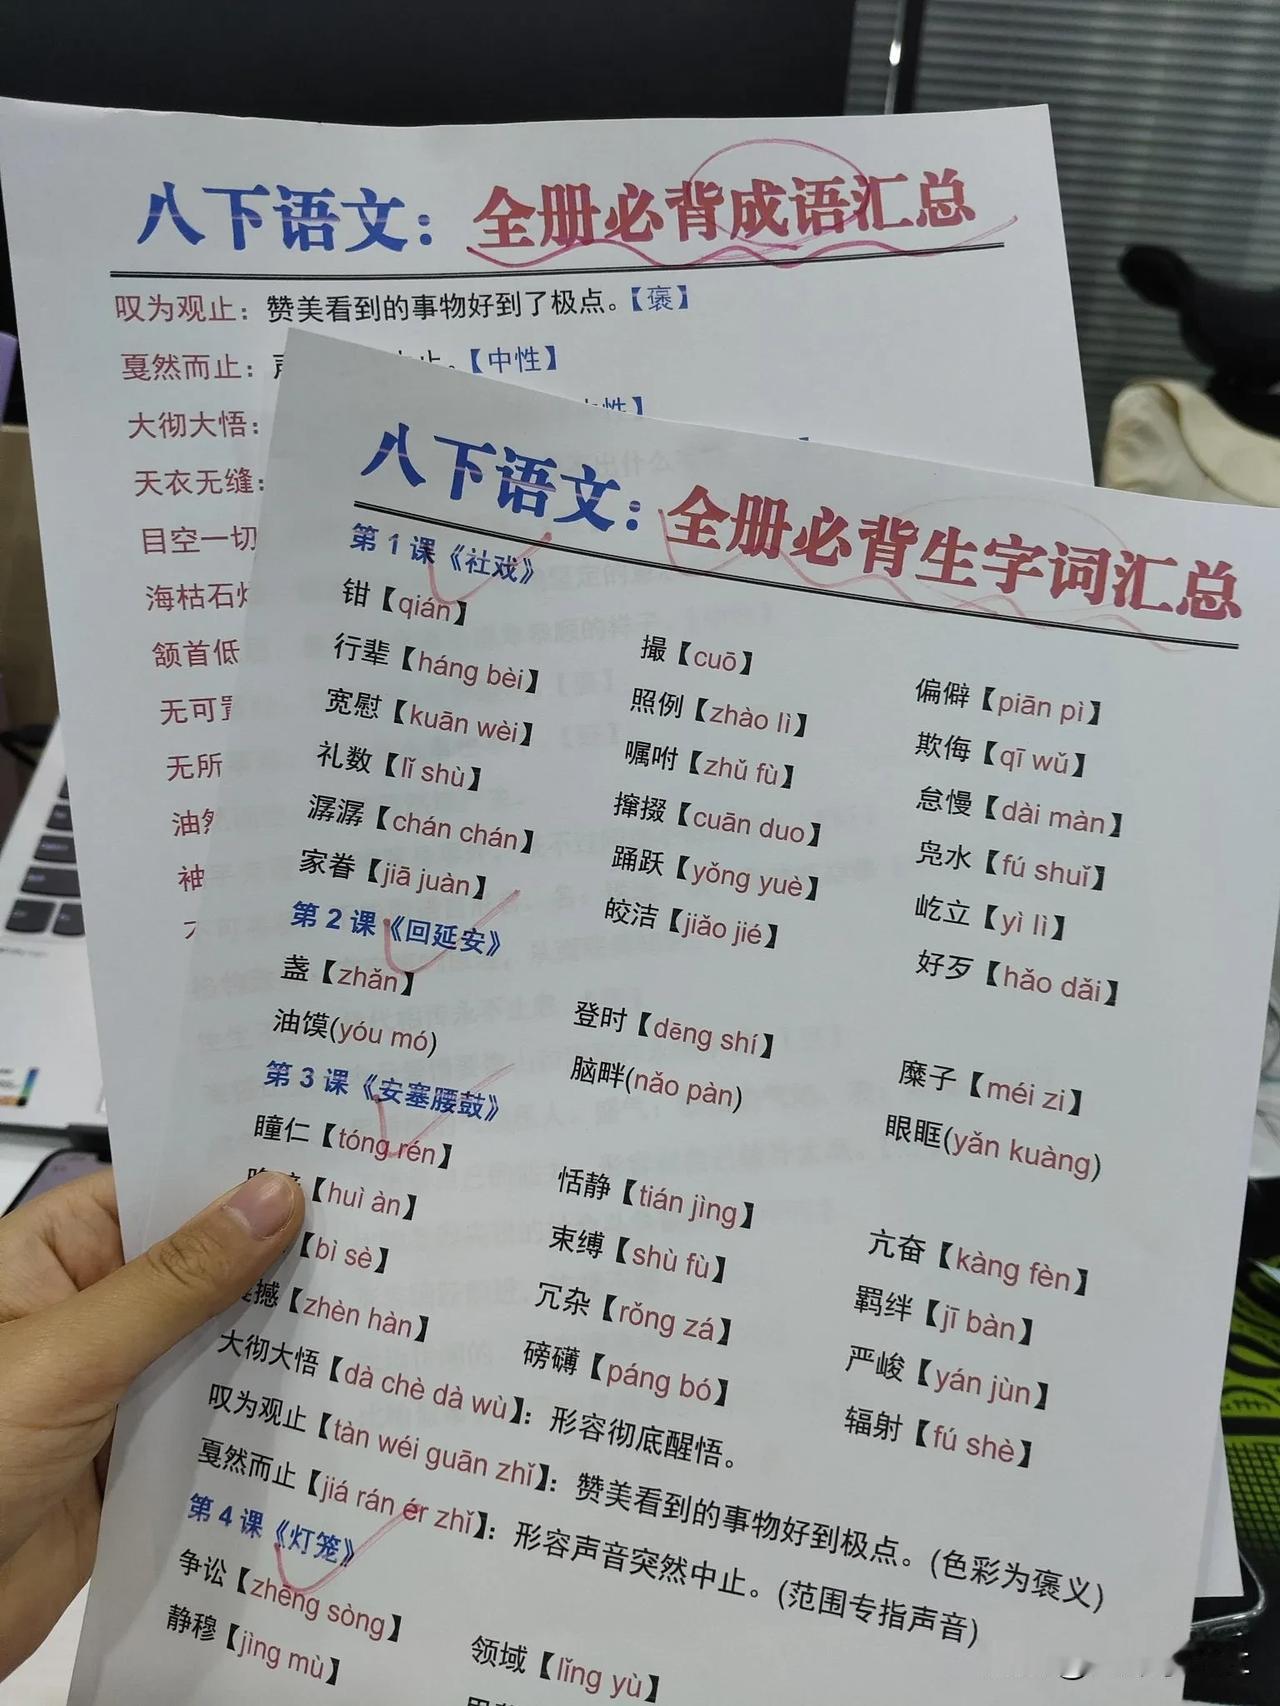 八下语文：全册必背成语汇总
叹为观止：赞美看到的事物好到了极点。【褒】
戛然而止：【中性】
大彻大悟：
天衣无缝：
目空一切
海枯石
颔首低
无可
无所
油
袖
八下语文：全册必背生字词汇总
第1课《社戏》
钳【qián】 撮【cuō】 偏僻【piān pì】
行辈【háng bèi】 照例【zhào lì】 欺侮【qī wǔ】
宽慰【kuān wèi】 嘱咐【zhǔ fù】 怠慢【dài màn】
礼数【lǐ shù】 撺掇【cuān duo】 凫水【fú shuǐ】
潺潺【chán chán】 踊跃【yǒng yuè】 屹立【yì lì】
家眷【jiā juàn】 皎洁【jiǎo jié】 好歹【hǎo dǎi】
第2课《回延安》
盏【zhǎn】 登时【dēng shí】 糜子【méi zi】
油馍(yóu mó) 脑畔(nǎo pàn) 眼眶(yǎn kuàng)
第3课《安塞腰鼓》
瞳仁【tóng rén】 恬静【tián jìng】 亢奋【kàng fèn】
【huì àn】 束缚【shù fù】 羁绊【jī bàn】
【bì sè】 冗杂【rǒng zá】 严峻【yán jùn】
撼【zhèn hàn】 磅礴【páng bó】 辐射【fú shè】
大彻大悟【dà chè dà wù】：形容彻底醒悟。
叹为观止【tàn wéi guān zhǐ】：赞美看到的事物好到极点。(色彩为褒义)
戛然而止【jiá rán ér zhǐ】：形容声音突然中止。(范围专指声音)
第4课《灯笼》
争讼【zhēng sòng】 领域【lǐng yù】
静穆【jìng mù】